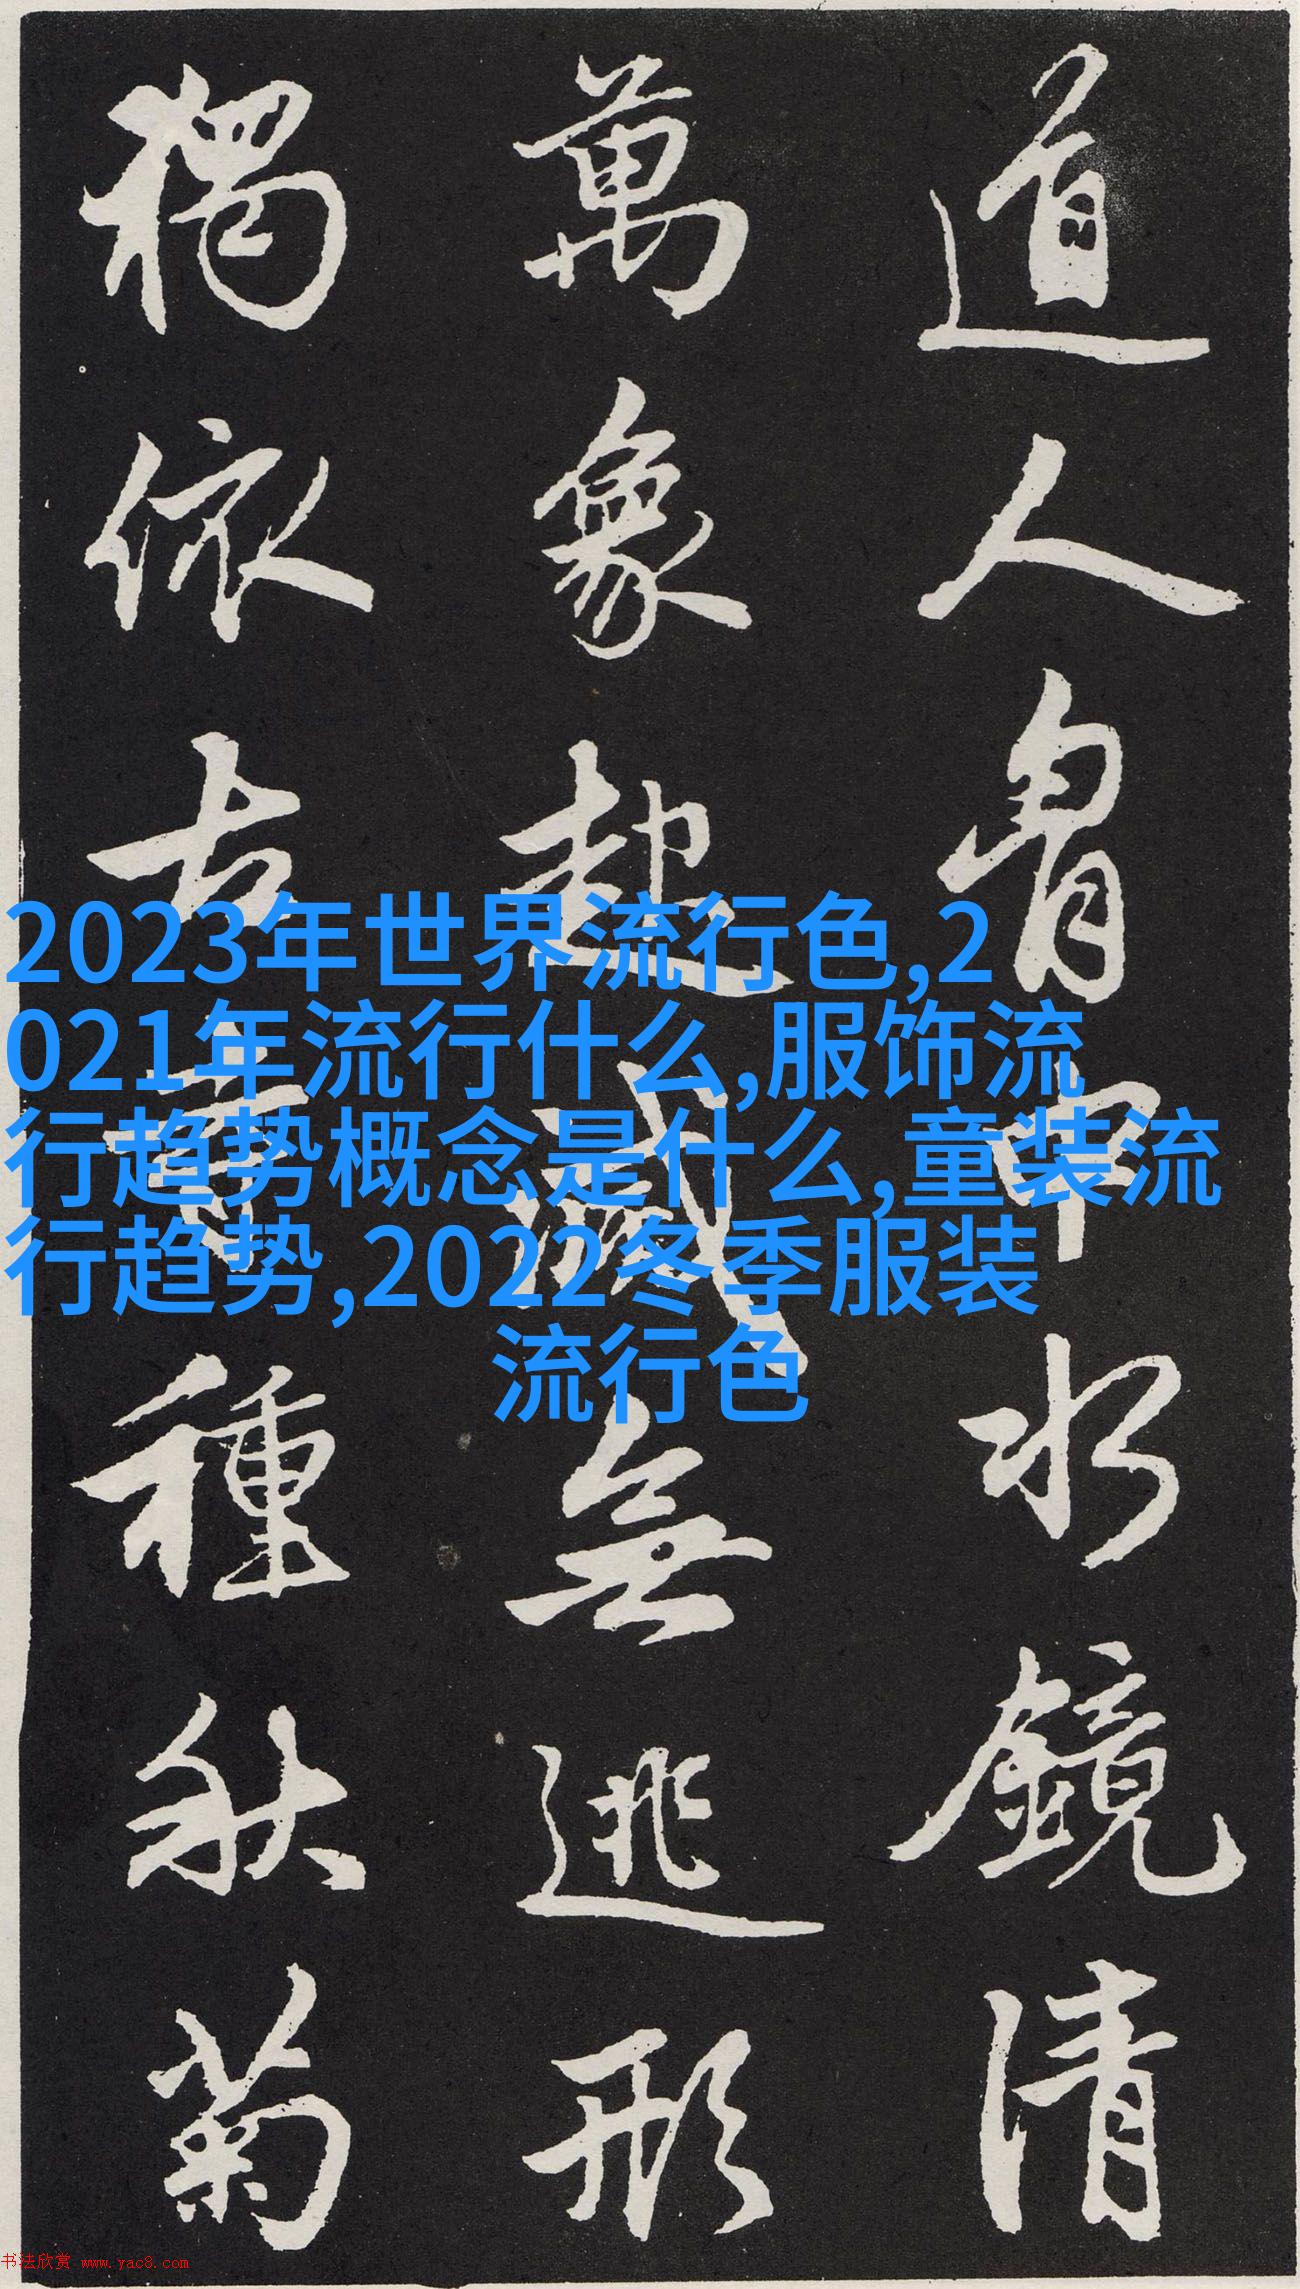 道人胷中水鏡清
萬象起滅無逃形
獨依古寺種秋菊
2023年世界流行色,2
021年流行什么,服饰流
行趋势概念是什么,童装流
行趋势,2022冬季服装
流行色
书法欣赏 www.yac8.com